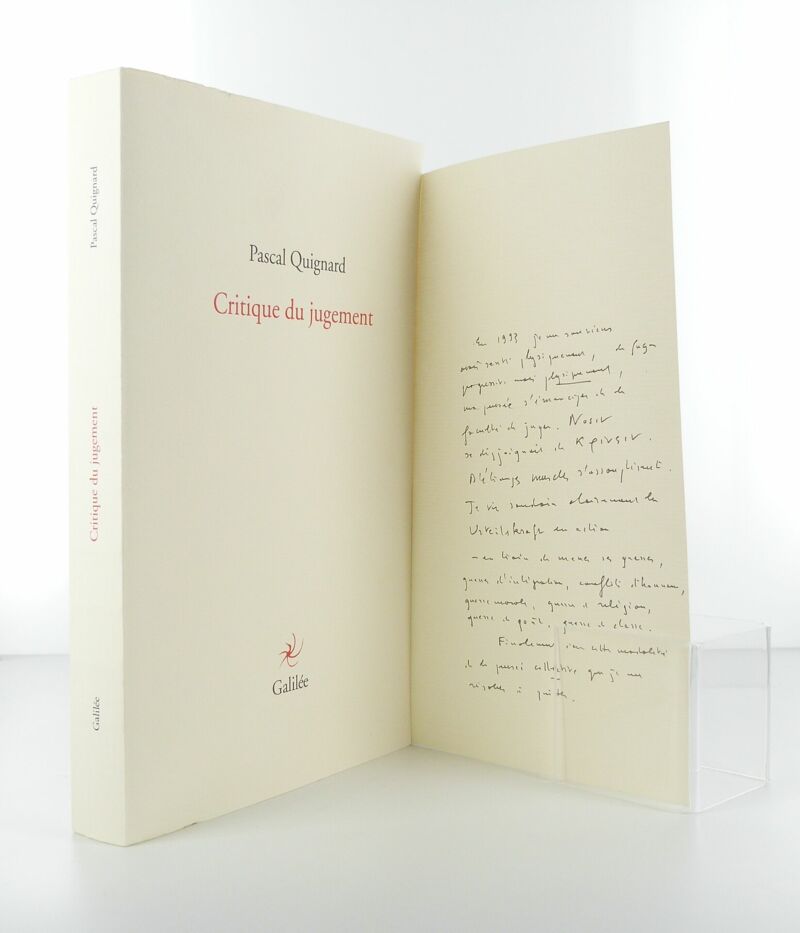 Pascal Quignard
Critique du jugement
Galilée
Pascal Quignard
Critique du jugement
Galilée
En 1993 je me souviens
avoir senti physiquement, de façon
progressive mais physiquement,
ma pensée s'émanciper de la
faculté de juger. Noein
se disjoignait de
muscles s'assouplirent.
Je vis soudain clairement la
Urteilskraft en action
– en train de mener ses guerres,
guerres d'intégration, conflits d'honneur,
guerre morale, guerre de religion,
guerre de goût, guerre de classe.
Finalement c'est cette modalité
de la pensée collective que je me
résolus à quitter.